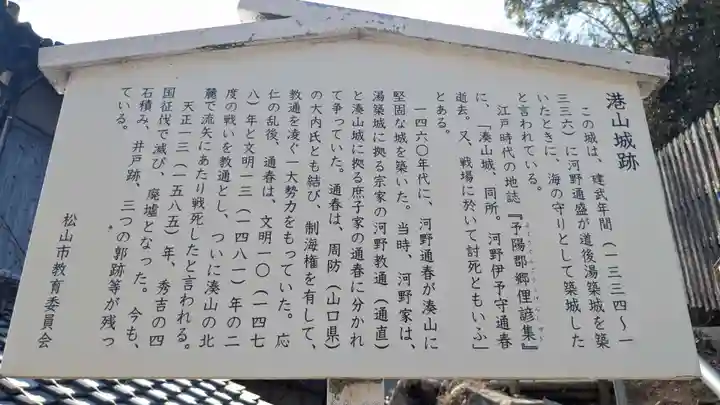 港山城跡
この城は、建武年間（一三三四〜一
三三六）に河野通盛が道後湯築城を築
いたときに、海の守りとして築城した
と言われている。
江戸時代の地誌『予陽郡郷俚諺集』
に、「湊山城、同所。河野伊予守通春
逝去。又、戦場に於いて討死ともいふ」
とある。
一四六〇年代に、河野通春が湊山に
堅固な城を築いた。当時、河野家は、
湯築城に拠る宗家の河野教通（通直）
と湊山城に拠る庶子家の通春に分かれ
て争っていた。通春は、周防（山口県）
の大内氏とも結び、制海権を有して、
教通を凌ぐ一大勢力をもっていた。応
仁の乱後、通春は、文明一〇（一四七
八）年と文明一三（一四八一）年の二
度の戦いを教通とし、ついに湊山の北
麓で流矢にあたり戦死したと言われる。
天正一三（一五八五）年、秀吉の四
国征伐で滅び、廃墟となった。今も、
石積み、井戸跡、三つの郭跡等が残っ
ている。
松山市教育委員会